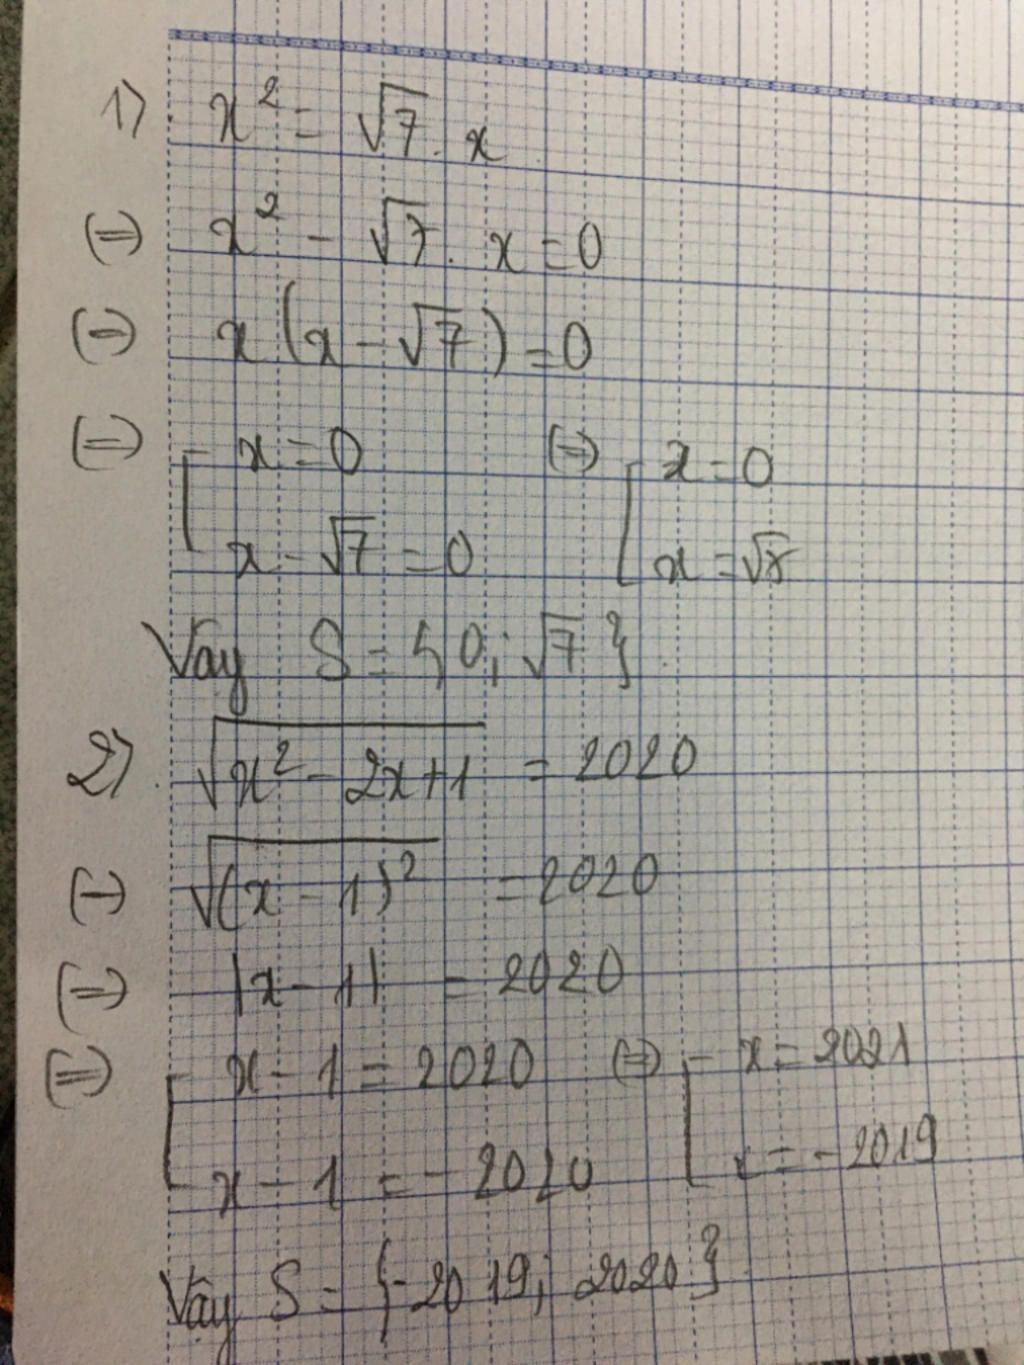 1) x² = √7 . x
(=) x² - √7 . x = 0
(=) x(x - √7) = 0
(=) [ x = 0 (=) [ x = 0
x - √7 = 0 x = √7
Vay S = { 0 ; √7 }
2) √(x² - 2x + 1) = 2020
(=) √((x - 1)²) = 2020
(=) |x - 1| = 2020
(=) [ x - 1 = 2020 (=) [ x = 2021
x - 1 = - 2020 x = - 2019
Vay S = { -2019 ; 2020 }